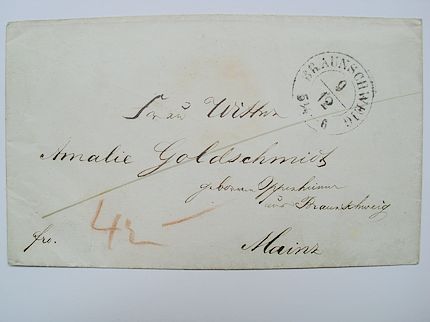 BRAUNSCHWEIG
9
12
5-6
Frau Wittwe
Amalie Goldschmidt
geborene Oppenheimer
aus Braunschweig
fro.
Mainz